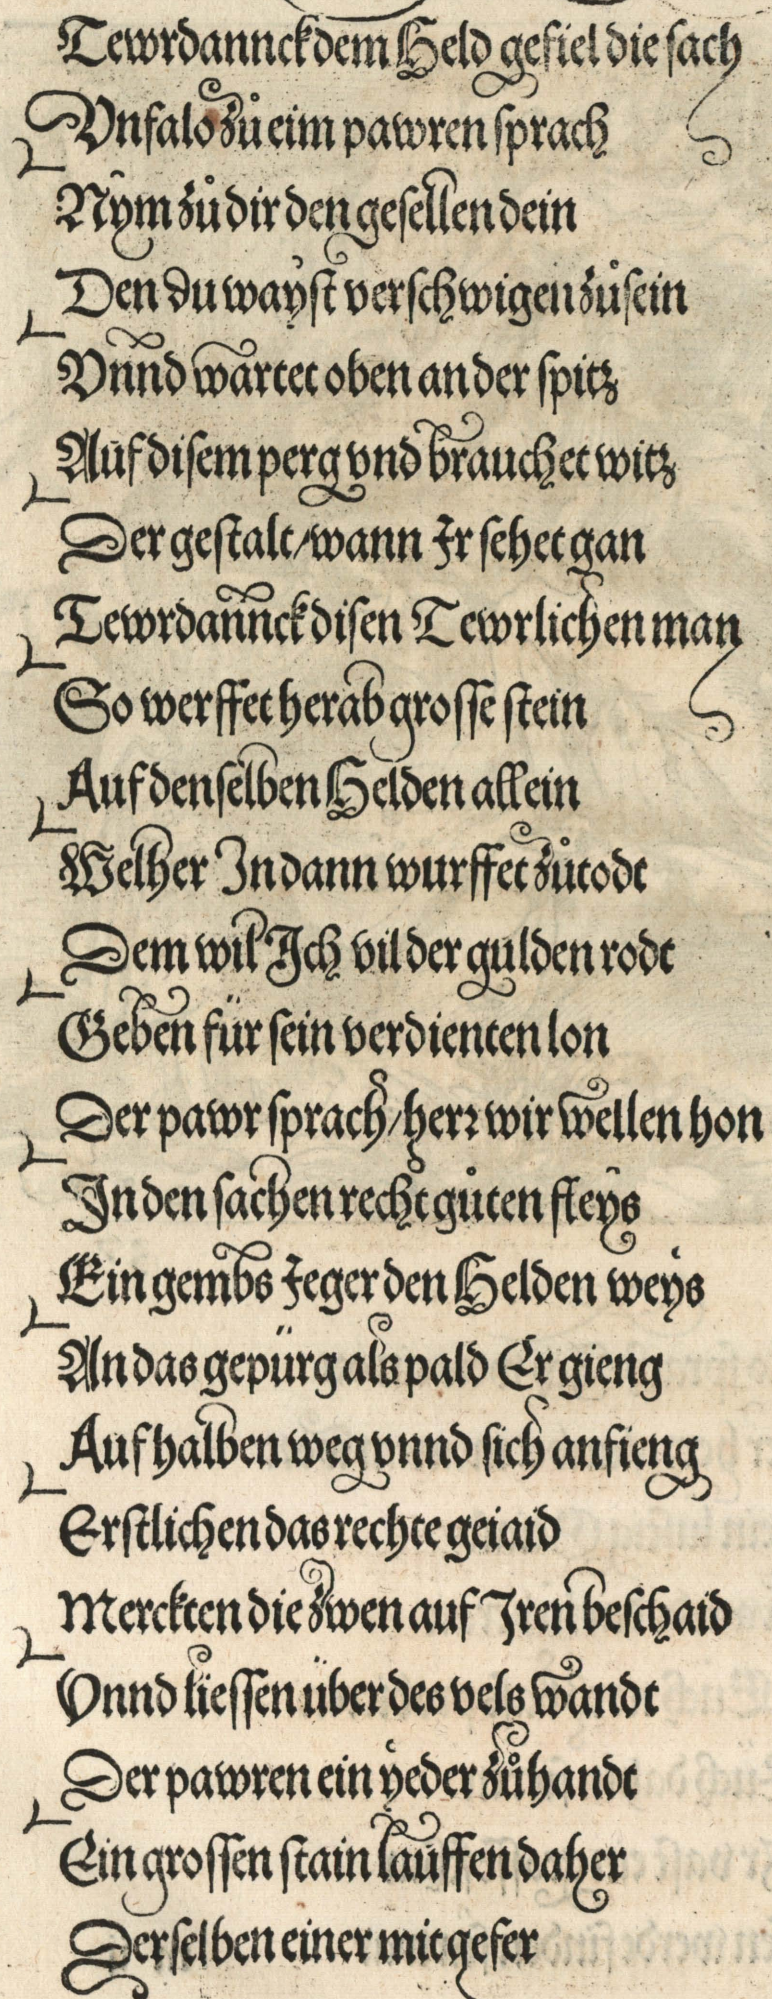 Tewrdannck dem Held gefiel die sach
Vnfalo zů eim pawren sprach
Nÿm zů dir den gesellen dein
Den du wayst verschwigen zů sein
Vnnd wartet oben an der spitz
Auf disem perg vnd brauchet witz
Der gestalt / wann Ir sehet gan
Tewrdannck disen Tewrlichen man
So werffet herab grosse stein
Auf denselben Helden allein
Welher In dann wurffet zů todt
Dem wil Ich vil der gulden rodt
Geben für sein verdienten lon
Der pawr sprach / herr wir wellen hon
In den sachen recht gůten fleys
Ein gembs Jeger den Helden weys
An das gepürg als pald Er gieng
Auf halben weg vnnd sich anfieng
Erstlichen das rechte geiaid
Merckten die zwen auf Iren beschaid
Vnnd liessen über des vels wandt
Der pawren ein yeder zů handt
Ein grossen stain lauffen daher
Derselben einer mit gefer